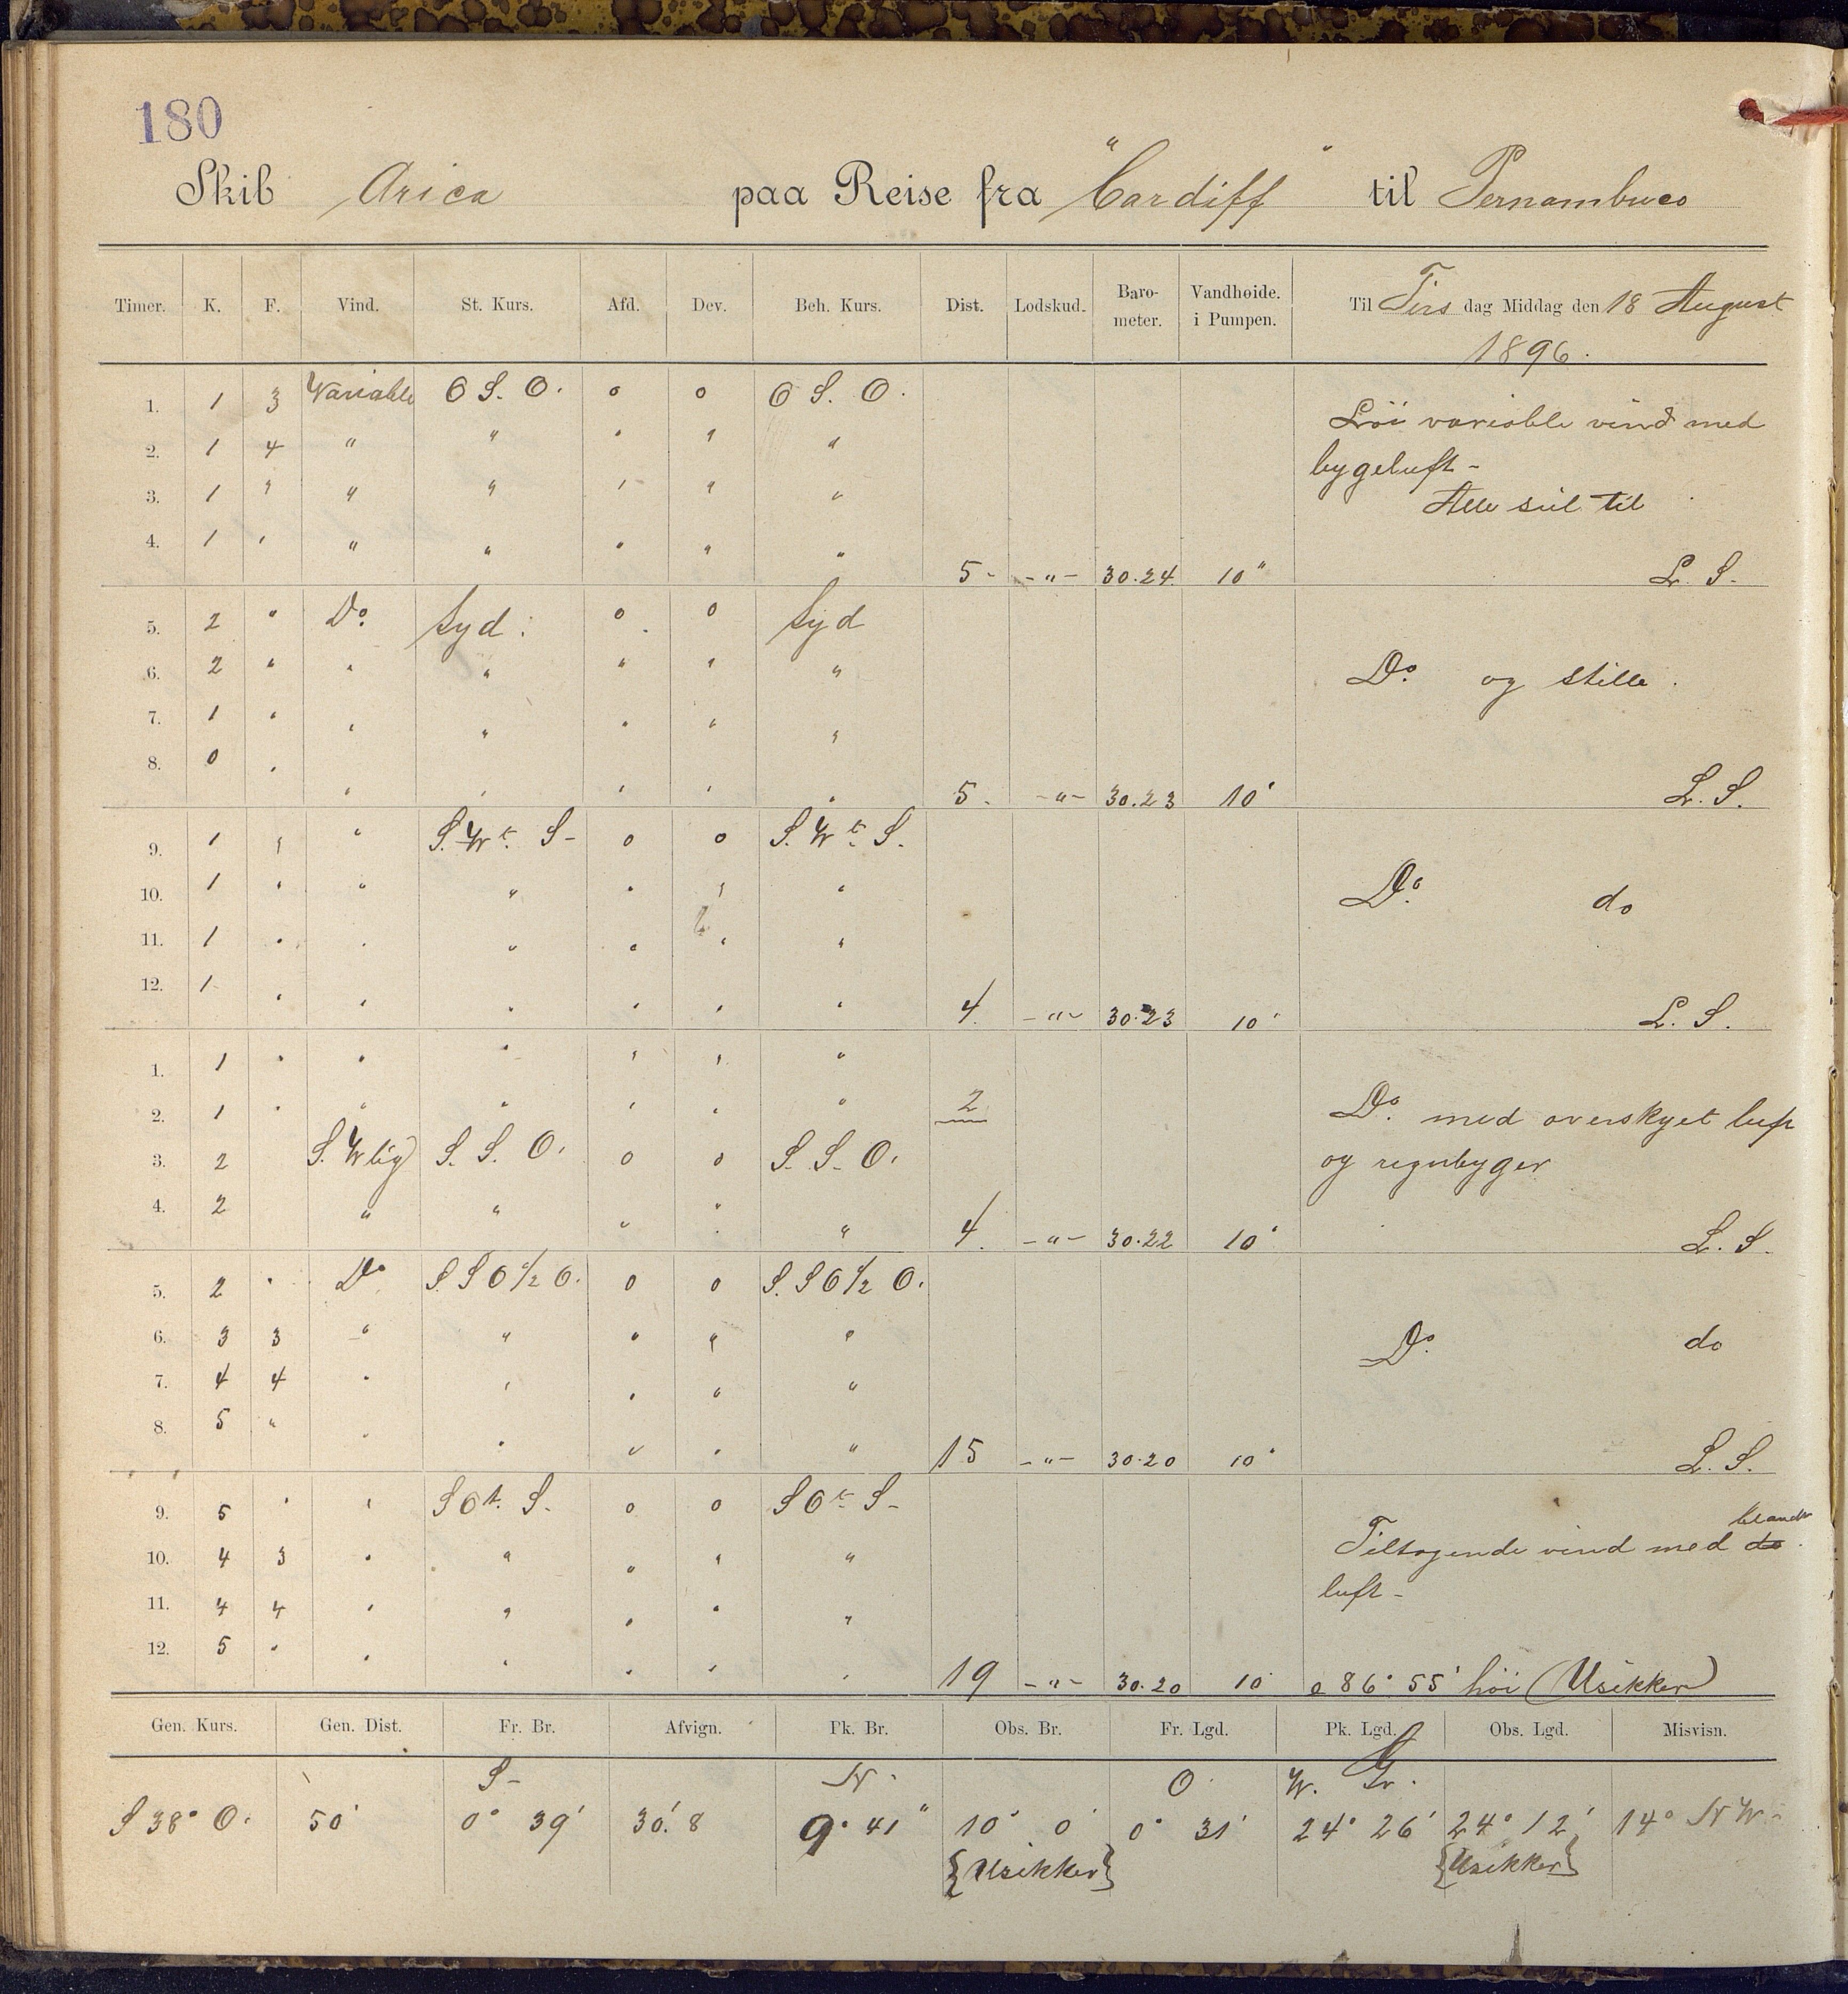 180
Skib Arica paa Reise fra "Cardiff" til Pernambuco
Timer. K. F. Vind. St. Kurs. Afd. Dev. Beh. Kurs. Dist. Lodskud. Baro-meter. Vandhøide. i Pumpen. Til Tirs dag Middag den 18 August
1896.
1. 1 3 Variable O S. O. 0 0 O S. O.
Löi variable vind med
2. 1 4 " " " " "
bygeluft -
3. 1 " " " " " "
Alle seil til
4. 1 " " " " " " 5 - - " - 30.24 10" L. S.
5. 2 " Do. Syd. 0 0 Syd
6. 2 " " " " " " Do. og stille.
7. 1 " " " " " "
8. 0 " " " " " " 5. - " - 30.23 10" L. S.
9. 1 " " S. Wt. S - 0 0 S. Wt. S.
10. 1 " " " " " " Do. do
11. 1 " " " " " "
12. 1 " " " " " " 4. - " - 30.23 10" L. S.
1. 1 " " " " " "
2. 1 " " " " " " 2 Do. med overskyet luft
3. 2 S. Wlig S. S. O. 0 0 S. S. O. og regnbyger
4. 2 " " " " " 4. - " - 30.22 10" L. S.
5. 2 " Do S S O 1/2 O. 0 0 S. S O 1/2 O.
6. 3 3 " " " " " Do. do
7. 4 4 " " " " "
8. 5 " " " " " " 15 - " - 30.20 10" L. S.
9. 5 " " S O t. S. 0 0 S O t. S -
blandt
10. 4 3 " " " " " Tiltagende vind med do
11. 4 4 " " " " " luft -
12. 5 " " " " " " 19 - " - 30.20 10 86° 55' höi (Usikker)
Gen. Kurs. Gen. Dist. Fr. Br. Afvign. Pk. Br. Obs. Br. Fr. Lgd. Pk. Lgd. Obs. Lgd. Misvisn.
S - N. O. W. Gr.
S 38° O. 50' 0° 39' 30'.8 9° 41" 10° 0' 0° 31' 24° 26' 24° 12' 14° N W -
{Usikker} {Usikker}